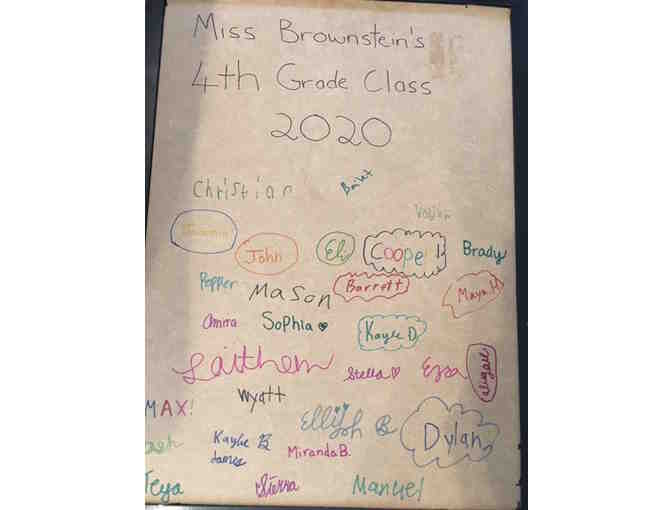 Miss Brownstein's
4th Grade Class
2020
Christian
John Eli Cooper Brady
Pepper Mason Barrett Maya H
Amira Sophia Kayle D
Laithem Stella Ezra Abigail
Wyatt
MAX! Ellijah B Dylan
Kaylie B Miranda B.
James
Teya Sierra Manuel